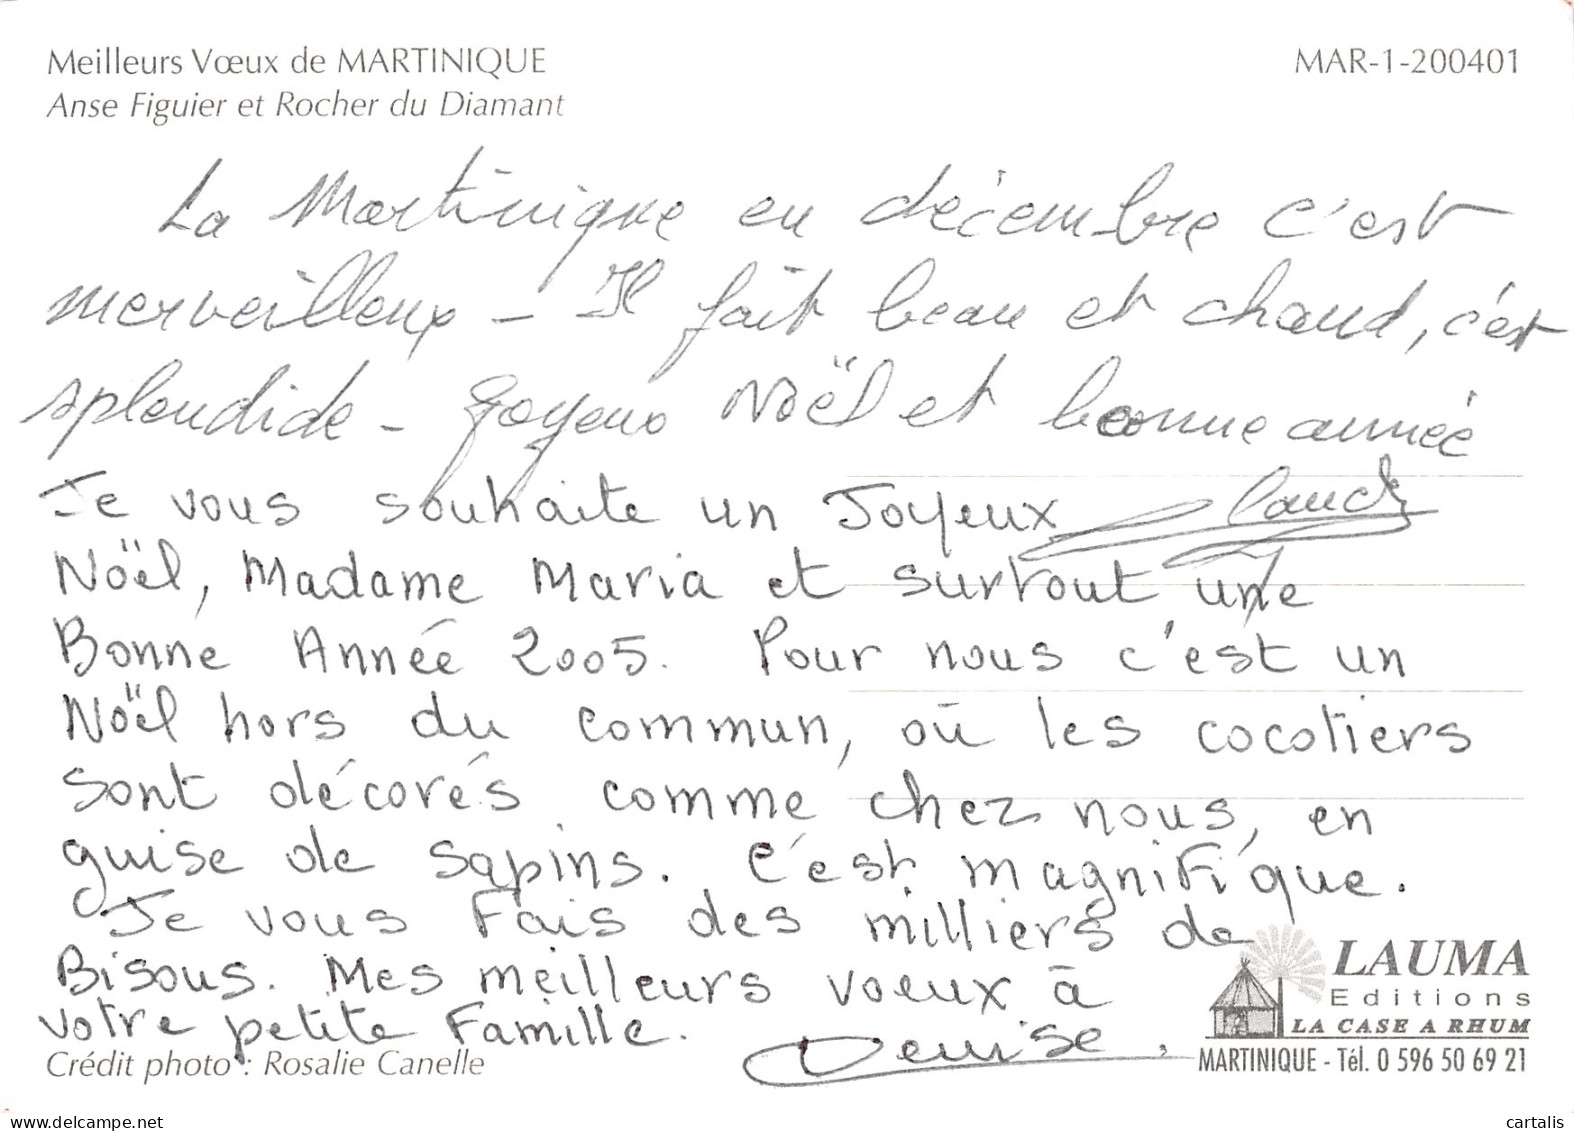 Meilleurs Vœux de MARTINIQUE
MAR-1-200401
Anse Figuier et Rocher du Diamant
La Martinique en décembre c'est
merveilleux - Il fait beau et chaud, c'est
splendide - Joyeux Noël et bonne année
Je vous souhaite un Joyeux
Noël, Madame Maria et surtout une
Bonne Année 2005. Pour nous c'est un
Noël hors du commun, où les cocotiers
sont décorés comme chez nous, en
guise de sapins. C'est magnifique.
Je vous Fais des milliers de
Bisous. Mes meilleurs voeux à
votre petite Famille.
Denise.
LAUMA
Editions
LA CASE A RHUM
MARTINIQUE - Tél. 0 596 50 69 21
Crédit photo : Rosalie Canelle
www.delcampe.net
cartalis